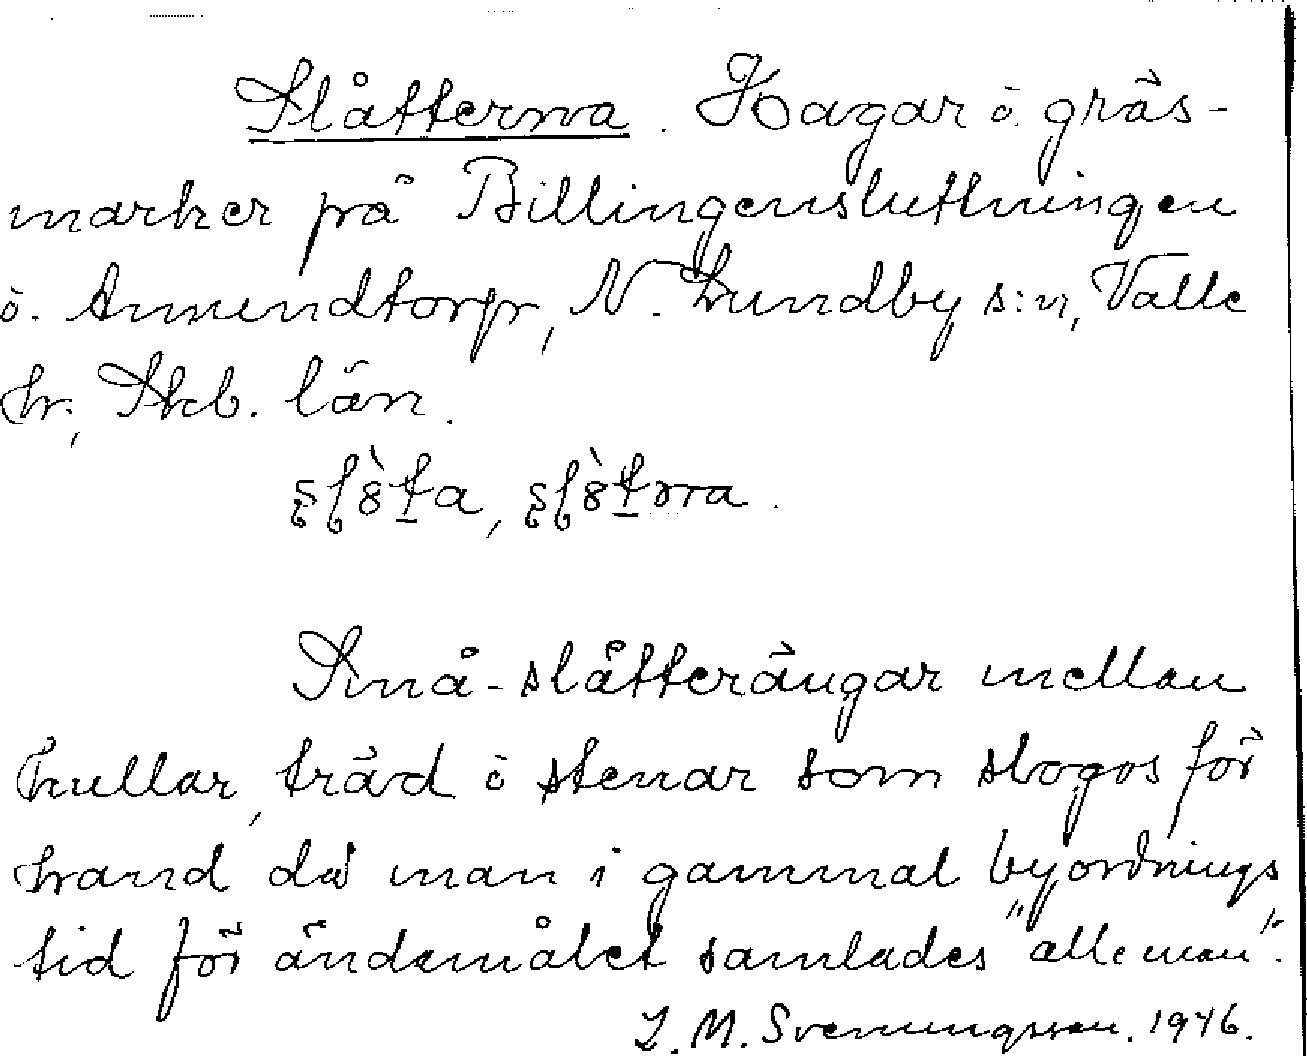 Slåtterna. Hagar ö. gräs-
marker på Billingensluttningen
ö. Amundtorp, N. Lundby s:n, Valle
hr, Skb. län.
Små-slåtterängar mellan
kullar, träd ö stenar som slogos för
hand då man i gammal byordnings
tid för ändamålet samlades "alle man".
L. M. Svenungsson. 1946.